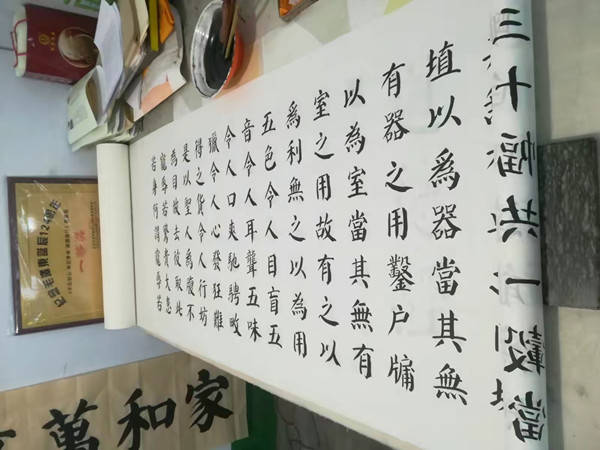 三十幅共一轂當
埴以爲器當其無
有器之用鑿户牖
以為室當其無有
室之用故有之以
爲利無之以為用
五色令人目盲五
音令人耳聾五味
令人口爽馳騁畋
獵令人心發狂難
得之貨令人行妨
是以聖人為腹不
為目故去彼取此
寵辱若驚貴大患
若身何謂寵辱若
纪念毛泽东诞辰124周年
一等奖
家和萬